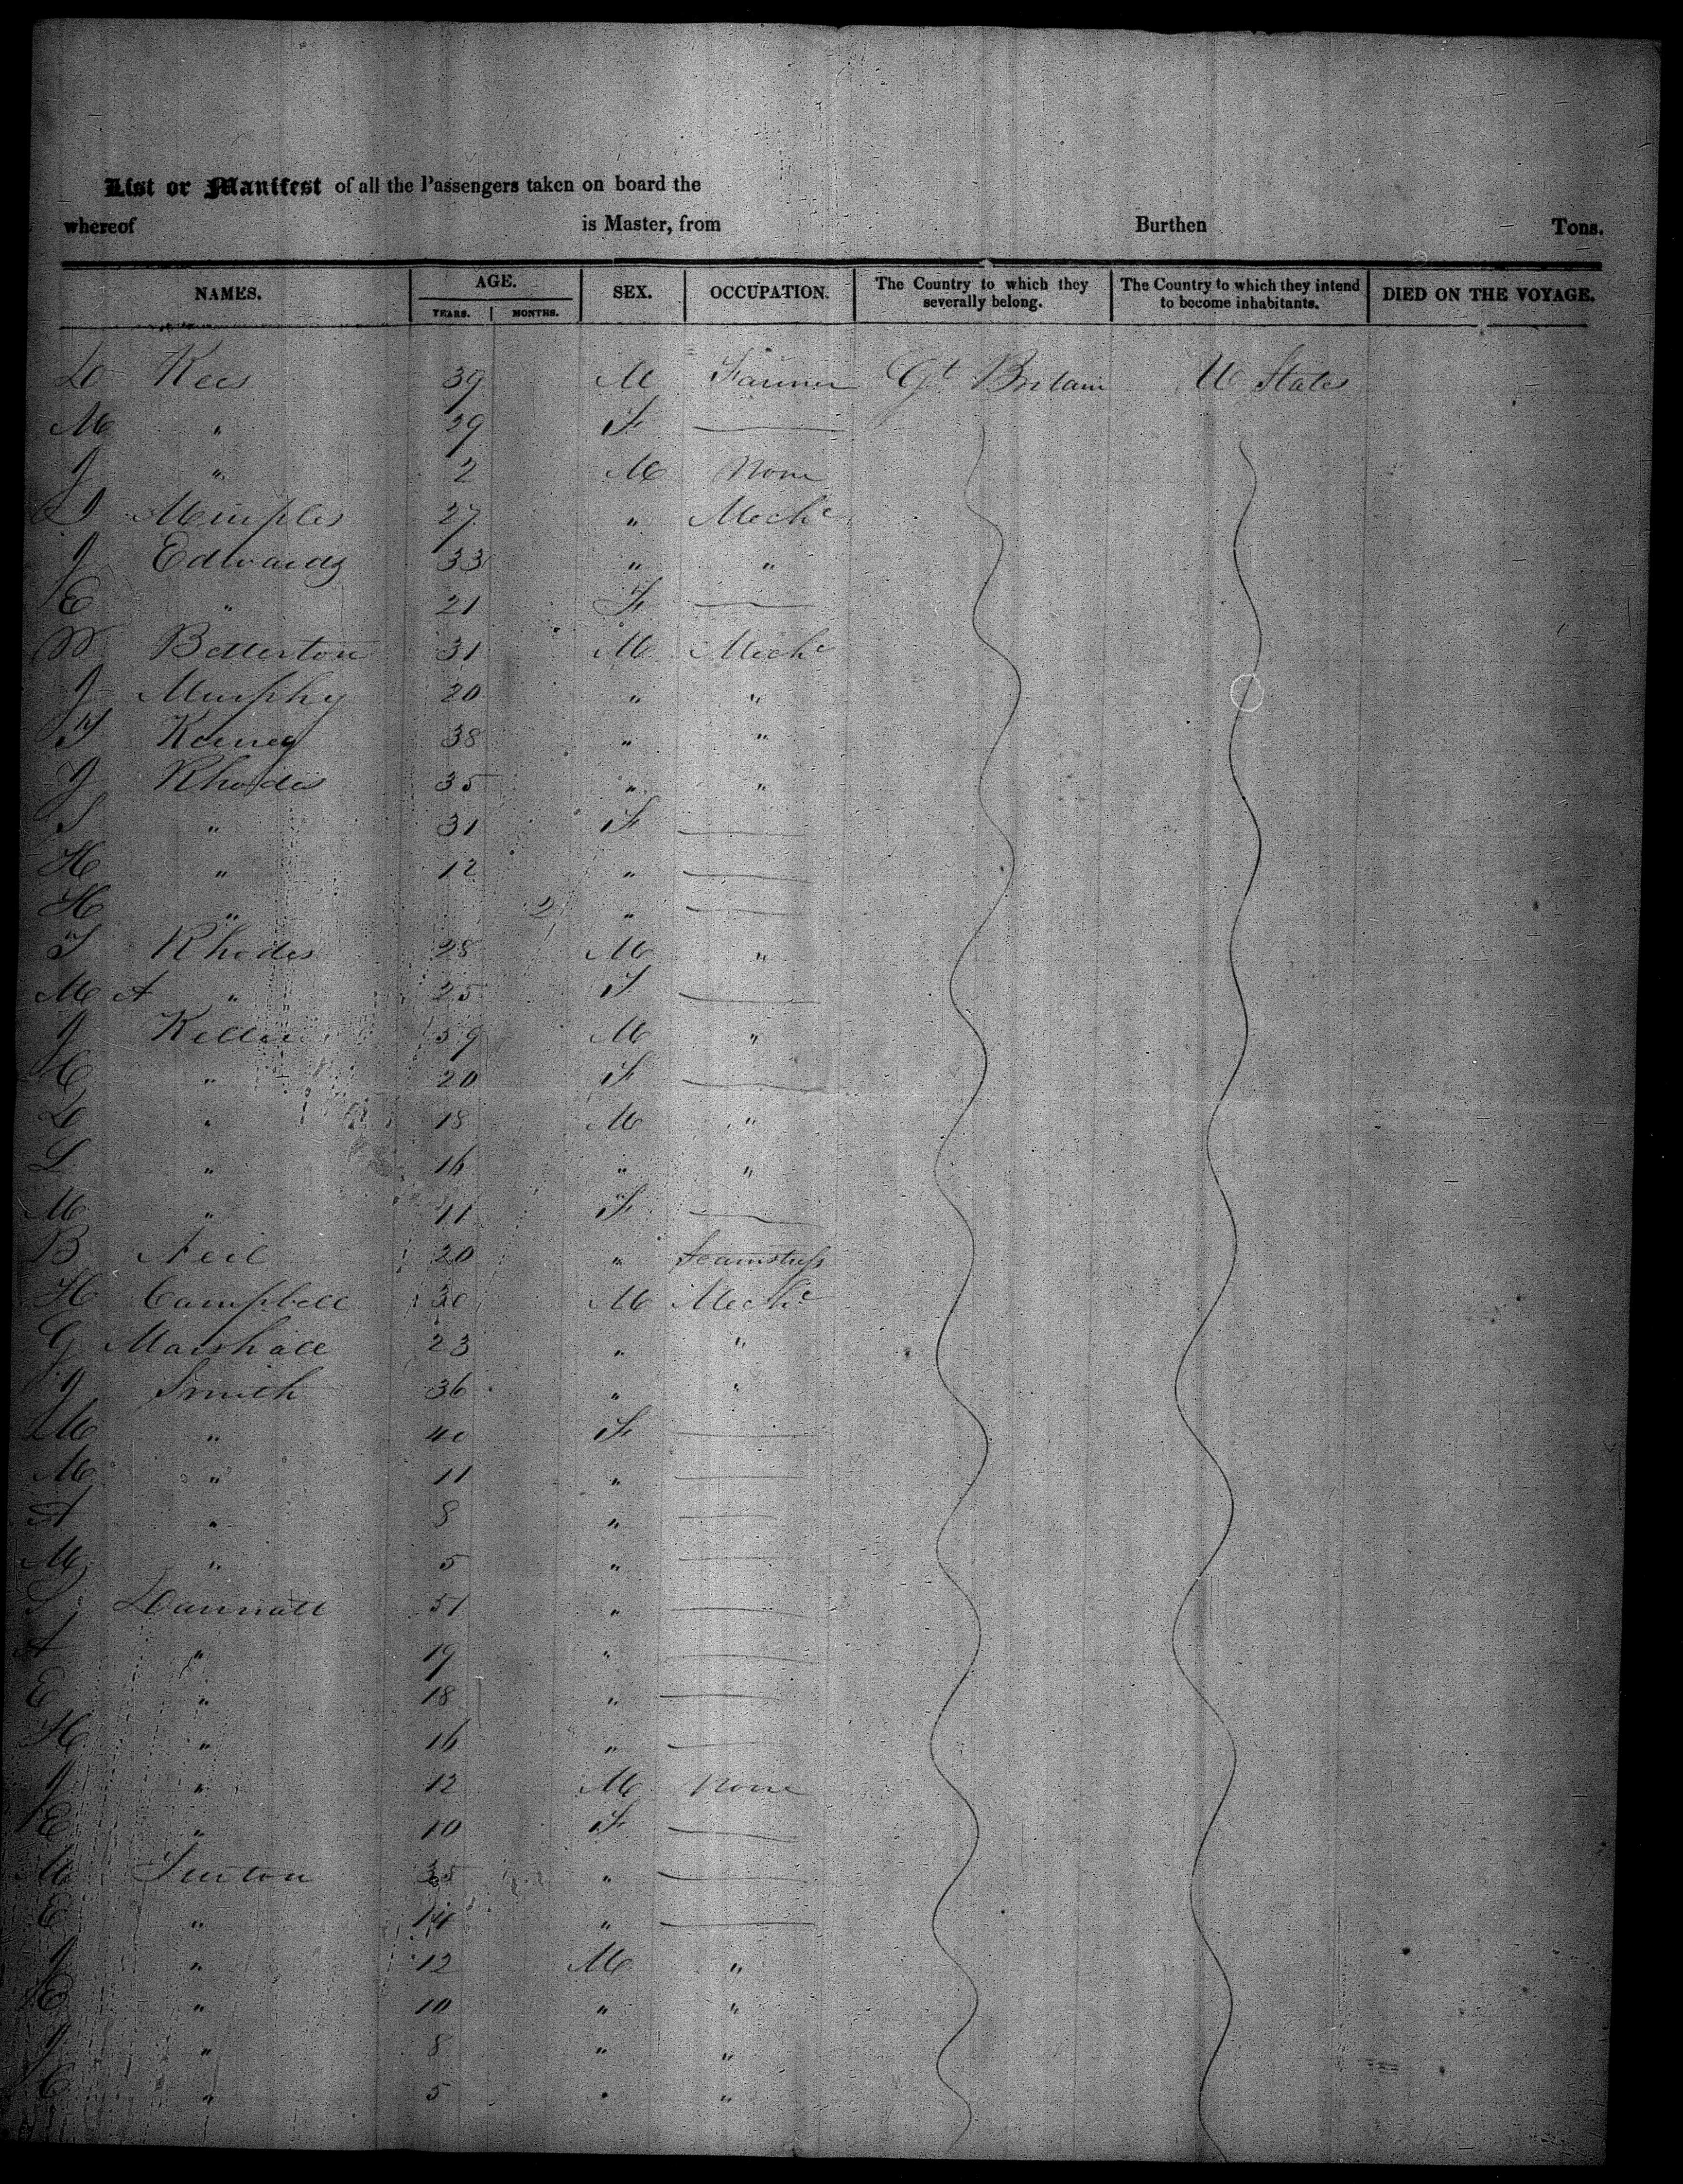 List or Manifest of all the Passengers taken on board the
whereof is Master, from Burthen Tons.
NAMES. AGE. SEX. OCCUPATION. The Country to which they severally belong. The Country to which they intend to become inhabitants. DIED ON THE VOYAGE.
YEARS. MONTHS.
D Rees 39 M Farmer Gt Britain U States
M " 29 F —
J " 2 M None
27 " Mechc
J Edwards 33 " "
E " 21 F —
W Betterton 31 M Mechc
J Murphy 20 " "
38 " "
J Rhodes 35 " "
S " 31 F —
H " 12 " —
H " 2 " —
T Rhodes 28 M "
M A " 25 F —
J 59 M "
" 20 F —
D " 18 M "
S " 16 " "
M " 11 F —
B Neil 20 " Seamstress
H Campbell 30 M Mechc
G Marshall 23 " "
J Smith 36 " "
M " 40 F —
M " 11 " —
A " 8 " —
M " 5 " —
S 51 " —
A " 19 " —
E " 18 " —
H " 16 " —
J " 12 M None
E " 10 F —
M 35 " —
E " 14 " —
J " 12 M "
E " 10 " "
J " 8 " "
C " 5 " "